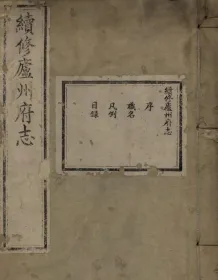 續修廬州府志
續修廬州府志
序
職名
凡例
目錄